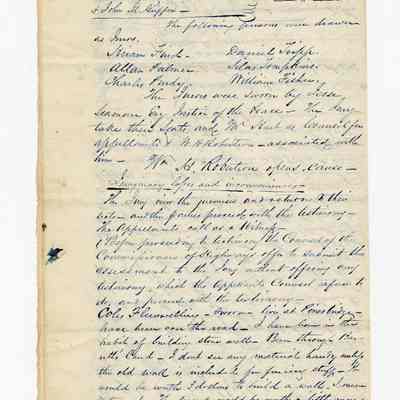 & John H. Griffin
The following persons were drawn
as Jurors.
Daniel Tripp
Allan Palmer Silas Tompkins
Charles William Fisher
The Jurors were sworn by Jesse
Seamon Esq Justice of the Peace - The Jury
take their Seats, and Mr as Counsel for
appellants & W H Robertson - associated with
him - Wm H. Robertson opens cause -
The Jury view the premises and return to their
seats - and the parties proceed with the testimony -
The Appellants call as a Witness -
(Before proceeding to testimony the Counsel of the
Commissioners of Highways offer to submit the
assessment to the Jury without offering any
testimony, which the Appellants Counsel refuse to
do, and proceed with the testimony -
Sworn - live at
have been over the road - I have been in the
habit of building stone walls - Been through
Land - I dont see any material unless
the old wall is included for fencing stuff - It
would be worth 1 dollar to build a wall,